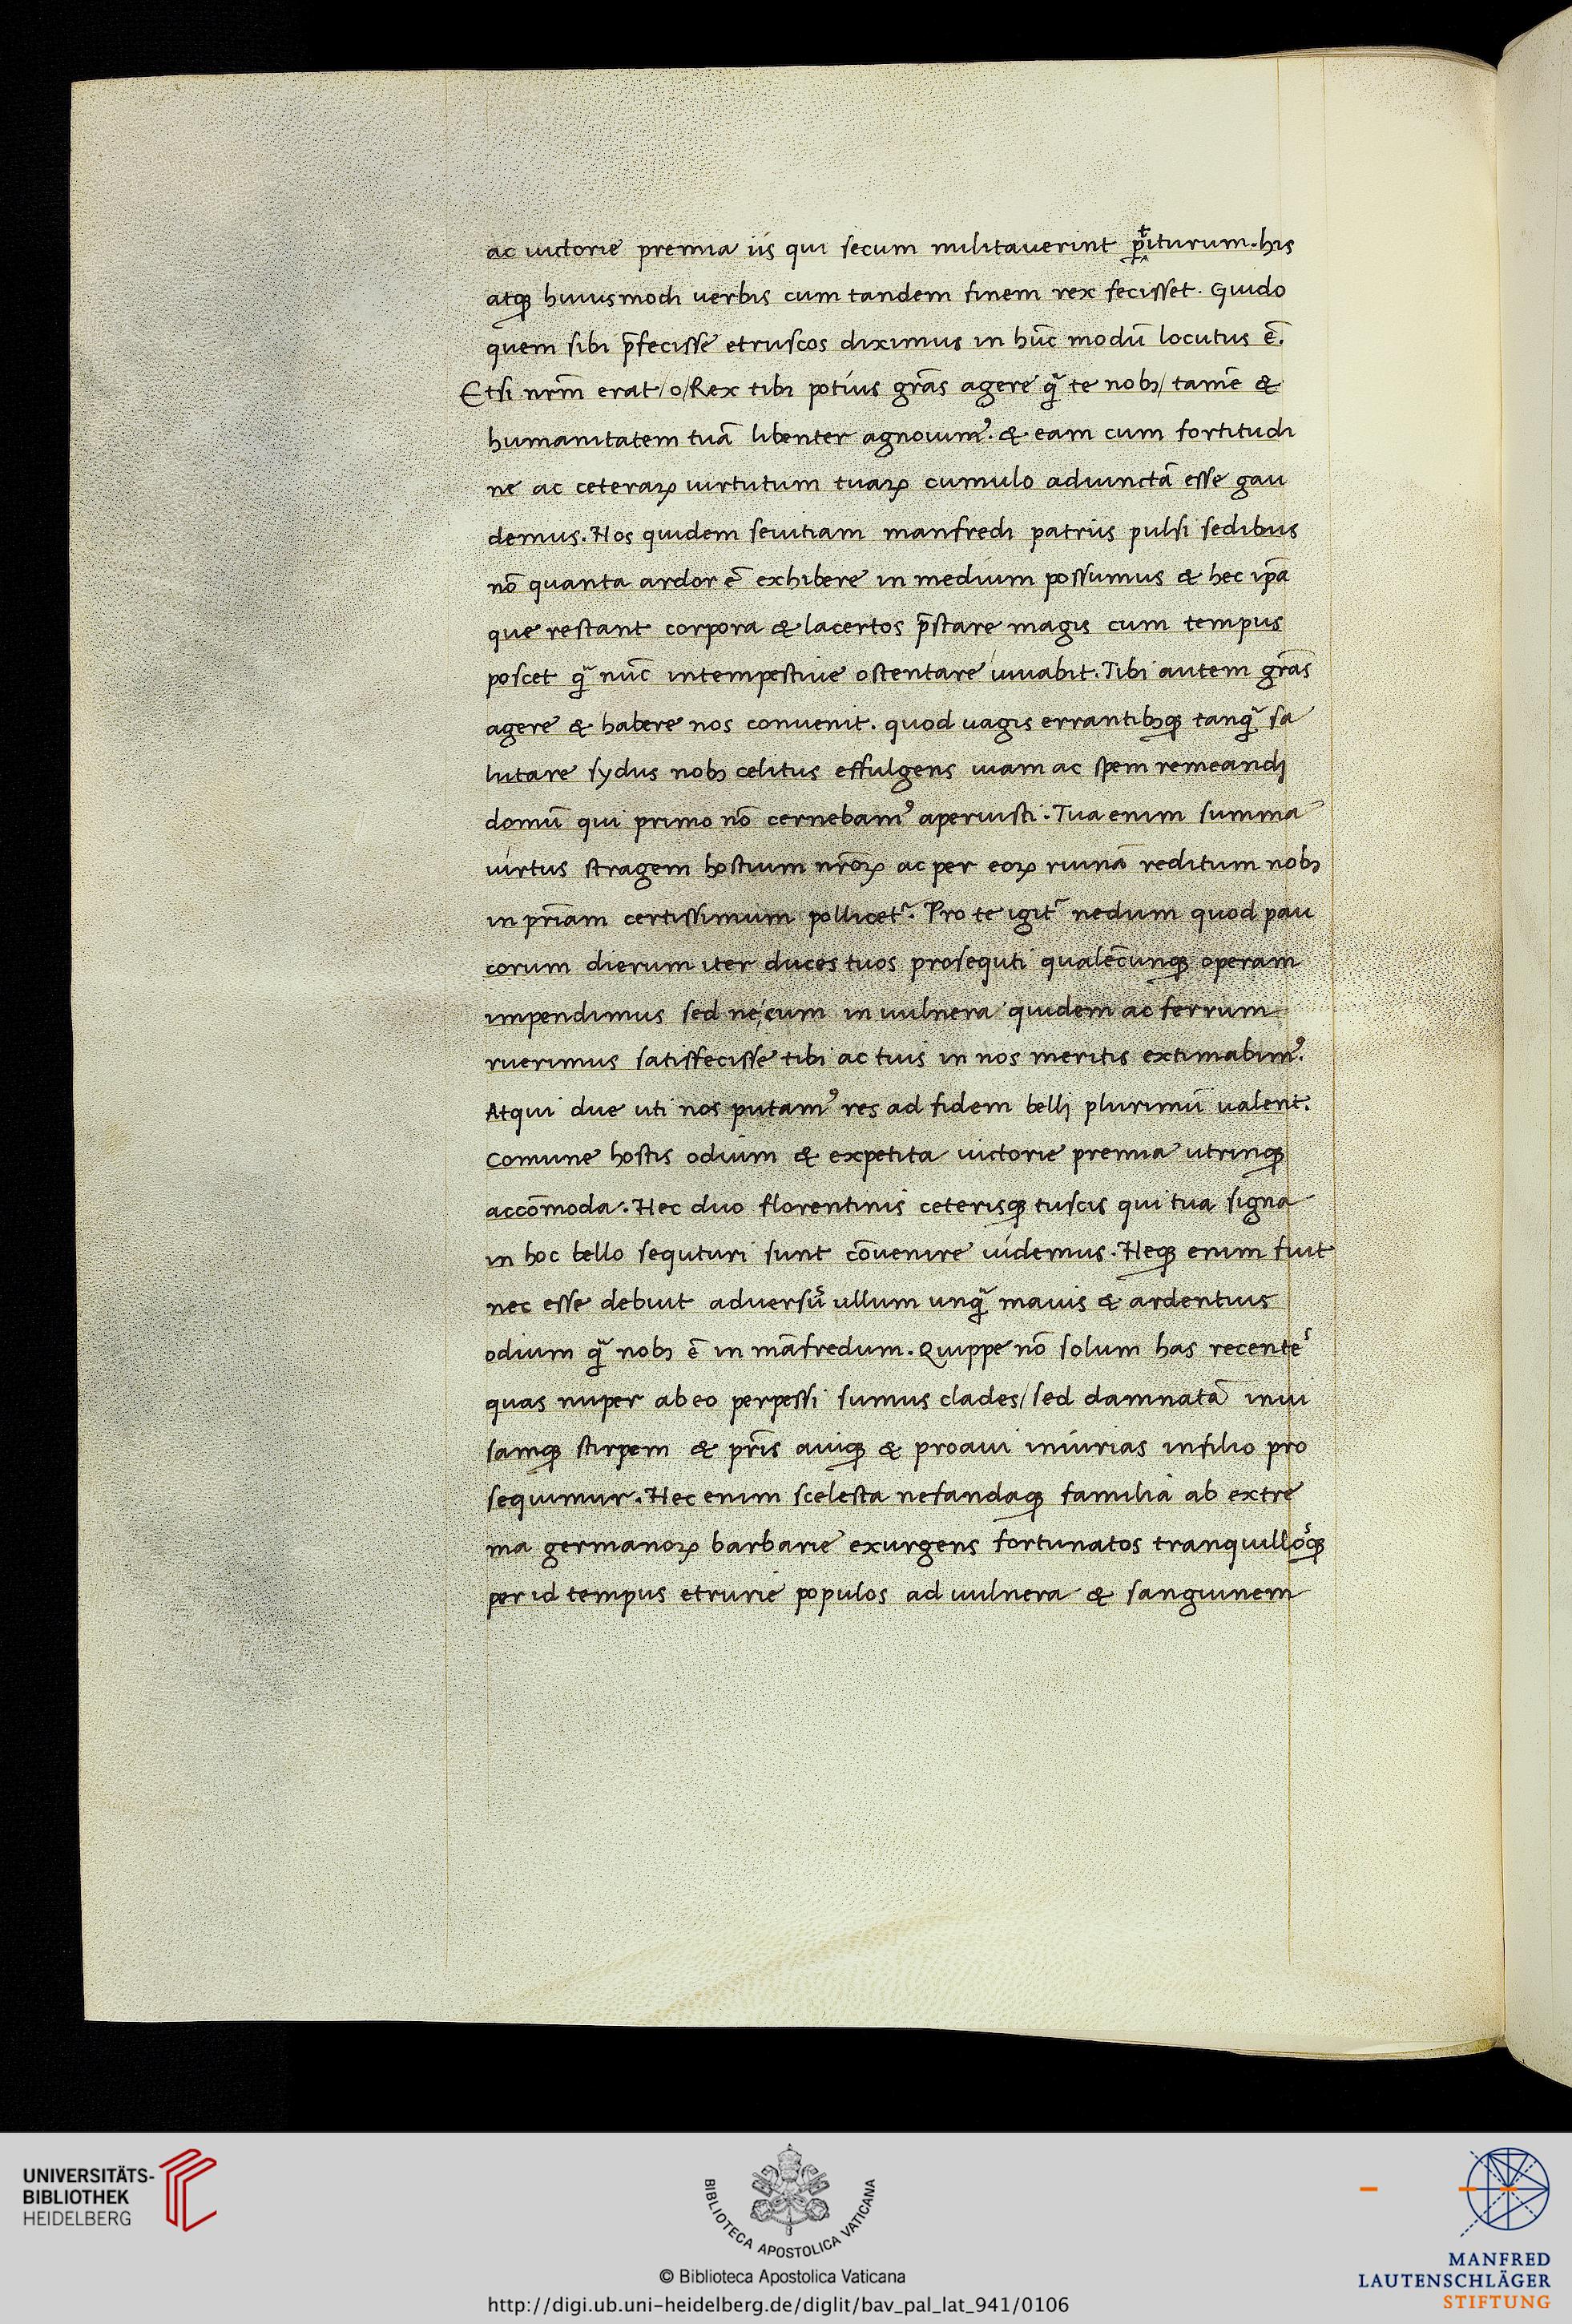 ac uictorie premia iis qui secum militauerint p̄titurum. his
atqꝫ huiusmodi uerbis cum tandem finem rex fecisset. Guido
quem sibi p̄fecisse etruscos diximus in hūc modū locutus ē.
Etsi nrm̄ erat/o/Rex tibi potius grās agere qͣ te nobꝫ/ tamē &
humanitatem tuā libenter agnouimꝰ. & eam cum fortitudi
ne ac ceteraꝝ uirtutum tuaꝝ cumulo adiunctā esse gau
demus. Nos quidem seuitiam manfredi patriis pulsi sedibus
nō quanta ardor ē exhibere in medium possumus & hec ip̄a
que restant corpora & lacertos p̄stare magis cum tempus
poscet qͣ nūc intempestiue ostentare iuuabit. Tibi autem grās
agere & habere nos conuenit. quod uagis errantibꝫqꝫ tanqͣ sa
lutare sydus nobꝫ celitus effulgens uiam ac spem remeandi
domū qui primo nō cernebamꝰ aperuisti. Tua enim summa
uirtus stragem hostium nrōꝝ ac per eoꝝ ruinā reditum nobꝫ
in pr̄iam certissimum pollicetᷣ. Pro te igitᷣ nedum quod pau
corum dierum iter duces tuos prosequti qualēcunqꝫ operam
impendimus sed ne, cum in uulnera quidem ac ferrum
ruerimus satisfecisse tibi ac tuis in nos meritis extimabimꝰ.
Atqui due uti nos putamꝰ res ad fidem belli plurimū ualent.
Comune hostis odium & expetita uictorie premia utrinqꝫ
accōmoda. Hec duo florentinis ceterisqꝫ tuscis qui tua signa
in hoc bello sequturi sunt cōuenire uidemus. Neqꝫ enim fuit
nec esse debuit aduersū ullum unqͣ maius & ardentius
odium qͣ nobꝫ ē in māfredum. Quippe nō solum has recentes
quas nuper ab eo perpessi sumus clades/ sed damnatā inui
samqꝫ stirpem & pr̄is auiqꝫ & proaui iniurias in filio pro
sequimur. Hec enim scelesta nefandaqꝫ familia ab extre
ma germanoꝝ barbarie exurgens fortunatos tranquillosqꝫ
per id tempus etrurie populos ad uulnera & sanguinem
UNIVERSITÄTS-
BIBLIOTHEK
HEIDELBERG
BIBLIOTECA APOSTOLICA VATICANA
© Biblioteca Apostolica Vaticana
http://digi.ub.uni-heidelberg.de/diglit/bav_pal_lat_941/0106
MANFRED
LAUTENSCHLÄGER
STIFTUNG